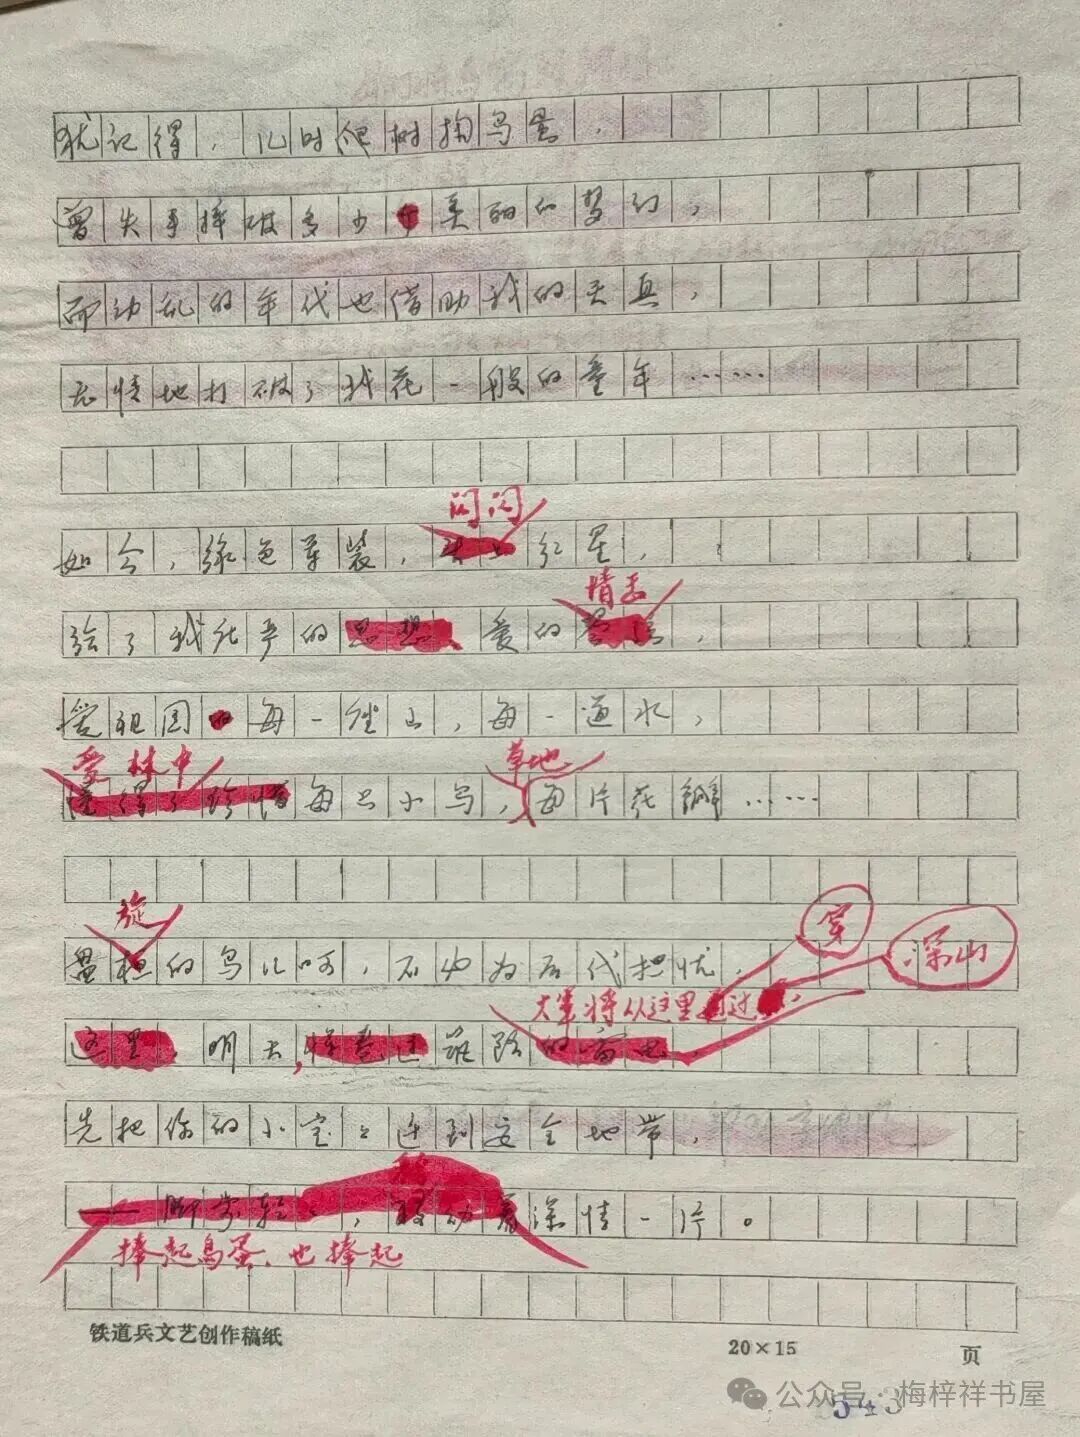 犹记得，儿时爬树掏鸟蛋，
曾失手摔破多少个美丽的梦幻，
而动乱的年代也借助我的天真，
无情地打破了我花一般的童年……
闪闪
如今，绿色军装，红星，
情天
给了我死亡的思想、爱的，
爱祖国的每一座山，每一道水，
爱林中 草地
懂得了珍惜每只小鸟，每片花瓣……
旋 穿
盘桓的鸟儿呵，不必为后代担忧， 深山
大军将从这里通过，
这里，明天，筑路的雷电，
先把你的小宝宝迁到安全地带，
——脚步轻轻，着深情一片。
捧起鸟蛋、也捧起
铁道兵文艺创作稿纸 20×15 页
公众号·梅梓祥书屋
543